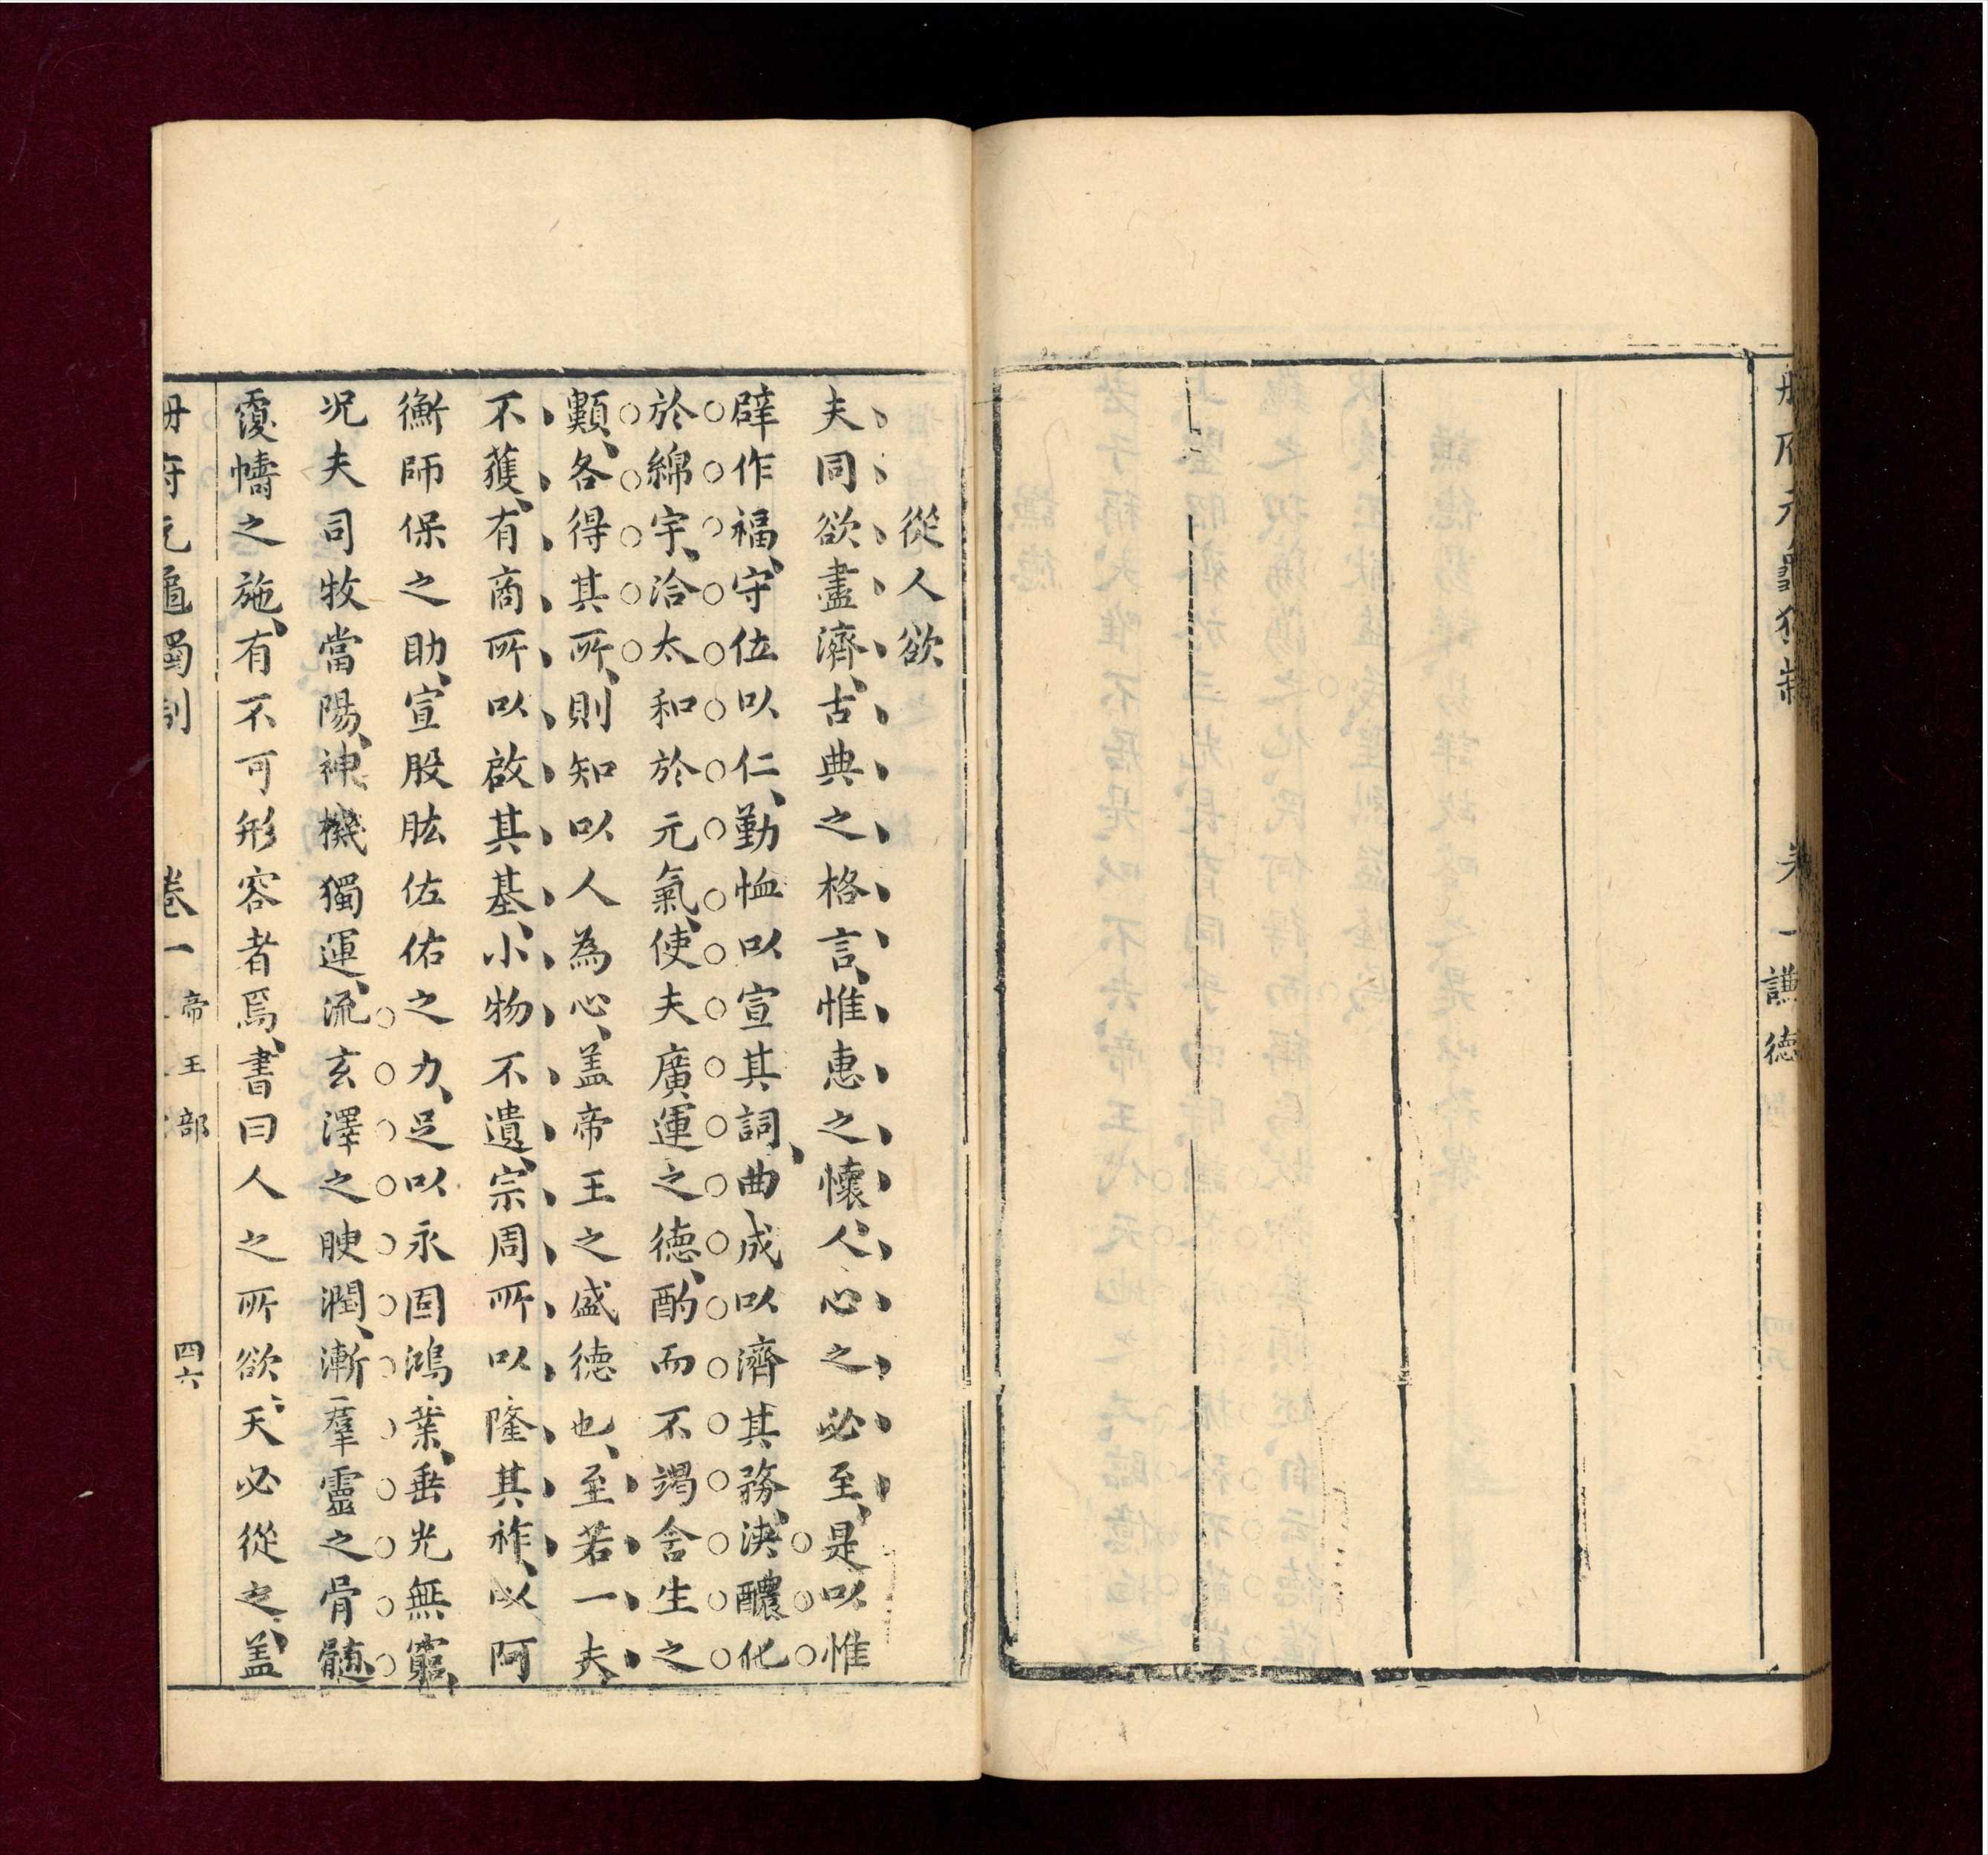 冊府元龜獨制　卷一　謙德
從人欲
夫同欲盡濟、古典之格言、惟惠之懷、人心之必至、是以惟
辟作福、守位以仁、勤恤以宣其詞、曲成以濟其務、浹醲化
於綿宇、洽太和於元氣、使夫廣運之德、酌而不竭含生之
顥、各得其所、則知以人為心、盖帝王之盛德也、至若一夫
不獲、有商所以啟其基、小物不遺、宗周所以隆其祚、以阿
衡師保之助、宣股肱佐佑之力、足以永固鴻業、垂光無窮、
况夫司牧當陽、神機獨運、流玄澤之腴潤、漸羣靈之骨髓、
覆幬之施、有不可形容者焉、書曰人之所欲、天必從之、盖
冊府元龜獨制　卷一　帝王部　四六